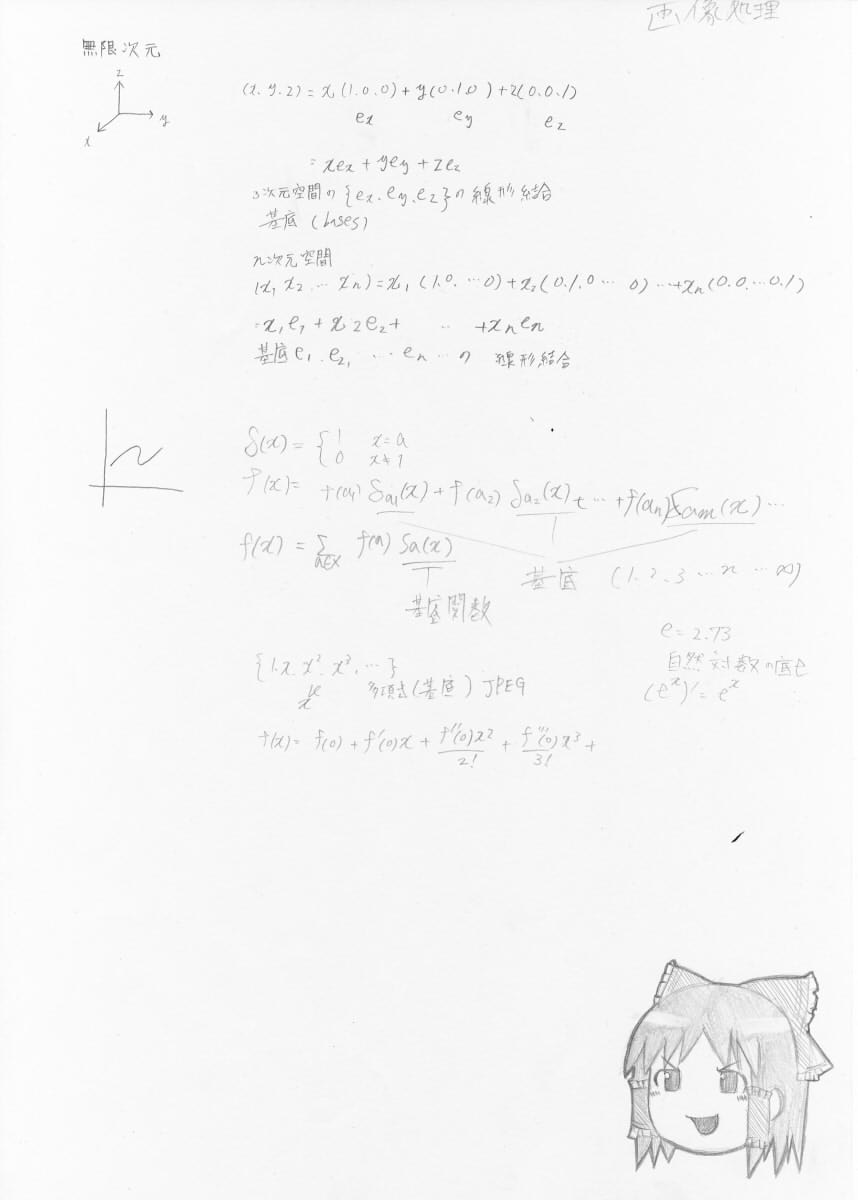 画像処理
無限次元
z
y
x
(x.y.z) = x(1.0.0) + y(0.1.0) + z(0.0.1)
ex ey ez
= xex + yey + zez
3次元空間の{ex.ey.ez}の線形結合
基底 (bases)
n次元空間
(x1 x2 … xn) = x1 (1.0. … 0) + x2 (0.1.0 … 0) … + xn (0.0. … 0.1)
= x1e1 + x2e2 + … + xnen
基底 e1. e2, … en … の 線形結合
δ(x) = { 1 x=a
0 x≠1
f(x) = f(a1) δa1(x) + f(a2) δa2(x) + … + f(an) δam(x) …
f(x) = Σ a∈x f(a) δa(x)
基底 (1.2.3 … n … ∞)
基底関数
e = 2.73
自然対数の底e
(e^x)' = e^x
{1.x.x².x³. … }
多項式(基底) JPEG
f(x) = f(0) + f'(0)x + f''(0)x²/2! + f'''(0)x³/3! +